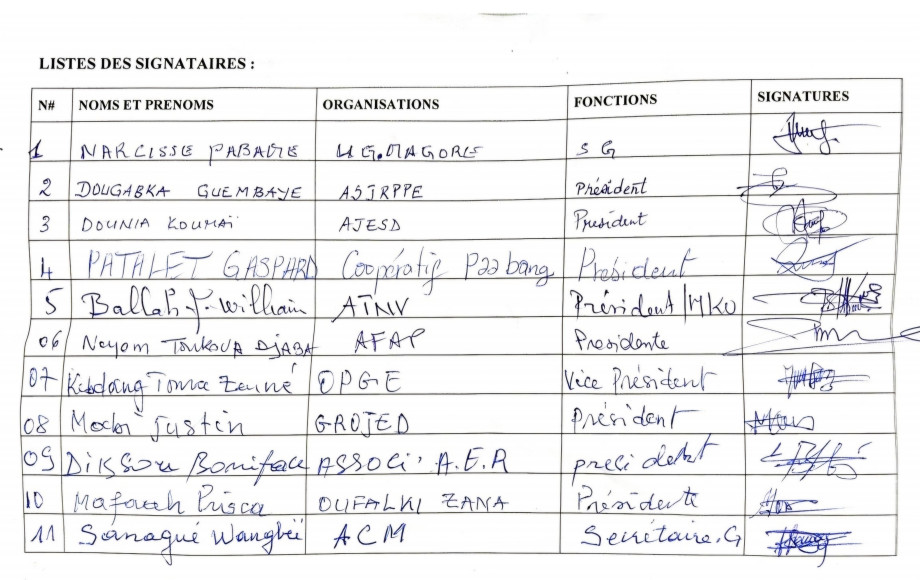 LISTES DES SIGNATAIRES :
N# NOMS ET PRENOMS ORGANISATIONS FONCTIONS SIGNATURES
1 NARCISSE PABAME U.G.MAGORE SG
2 DOUGABKA GUEMBAYE ASTRPPE Président
3 DOUNIA KOUMAÏ AJESD President
4 PATALET GASPARD Coopératif Paabang Président
5 Ballah J. William ATNV Président/MKO
06 Neyom Toukoua DJABA AFAP Presidente
07 Kindang Tonna Zenné OPGE Vice Président
08 Mochi Justin GROJED président
09 Dikssou Boniface ASSOCI' A.E.R
10 Prisca OUFALKI ZANA Présidente
11 Sanagué Wangbéï ACM Secrétaire.G